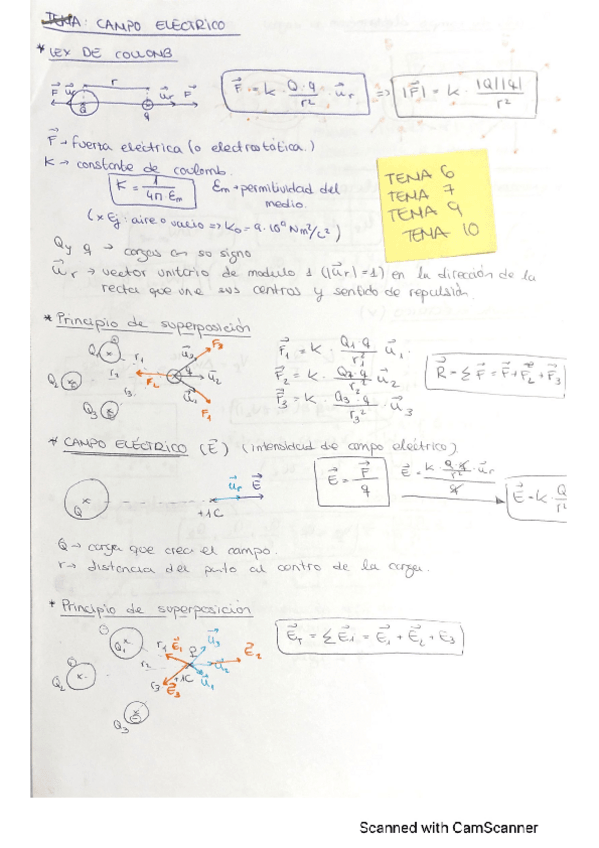 TEMA: CAMPO ELÉCTRICO
* LEY DE COULOMB
F⃗ u⃗r r u⃗r F⃗
Q q
F⃗ = K · Q · q / r² · u⃗r => |F⃗| = K · |Q||q| / r²
F⃗ → fuerza eléctrica (o electrostática.)
K → constante de coulomb.
K = 1 / 4π · Em Em → permitividad del
medio.
(x Ej: aire o vacio => K₀ = 9·10⁹ Nm²/C²)
TEMA 6
TEMA 7
TEMA 9
TEMA 10
Q y q → cargas con su signo
u⃗r → vector unitario de modulo 1 (|u⃗r| = 1) en la dirección de la
recta que une sus centros y sentido de repulsión.
* Principio de superposición
Q₁ r₁ u⃗₃ F₃
Q₂ r₂ F₂ q u⃗₂
Q₃ r₃ F₁
F⃗₁ = K · Q₁ · q / r₁² · u⃗₁
F⃗₂ = K · Q₂ · q / r₂² · u⃗₂
F⃗₃ = K · Q₃ · q / r₃² · u⃗₃
R⃗ = Σ F⃗ = F⃗ + F⃗₂ + F⃗₃
* CAMPO ELÉCTRICO (E⃗) (Intensidad de campo eléctrico)
Q +1C u⃗r E⃗
E⃗ = F⃗ / q E⃗ = K · Q · q / r² · u⃗r / q E⃗ = K · Q / r²
Q → carga que crea el campo.
r → distancia del punto al centro de la carga.
* Principio de superposición
Q₁ r₁ E⃗₁ P u⃗₃ E⃗₂
Q₂ r₂ u⃗₂
r₃ E⃗₃ +1C u⃗₁
Q₃
E⃗T = Σ E⃗i = E⃗₁ + E⃗₂ + E⃗3
Scanned with CamScanner